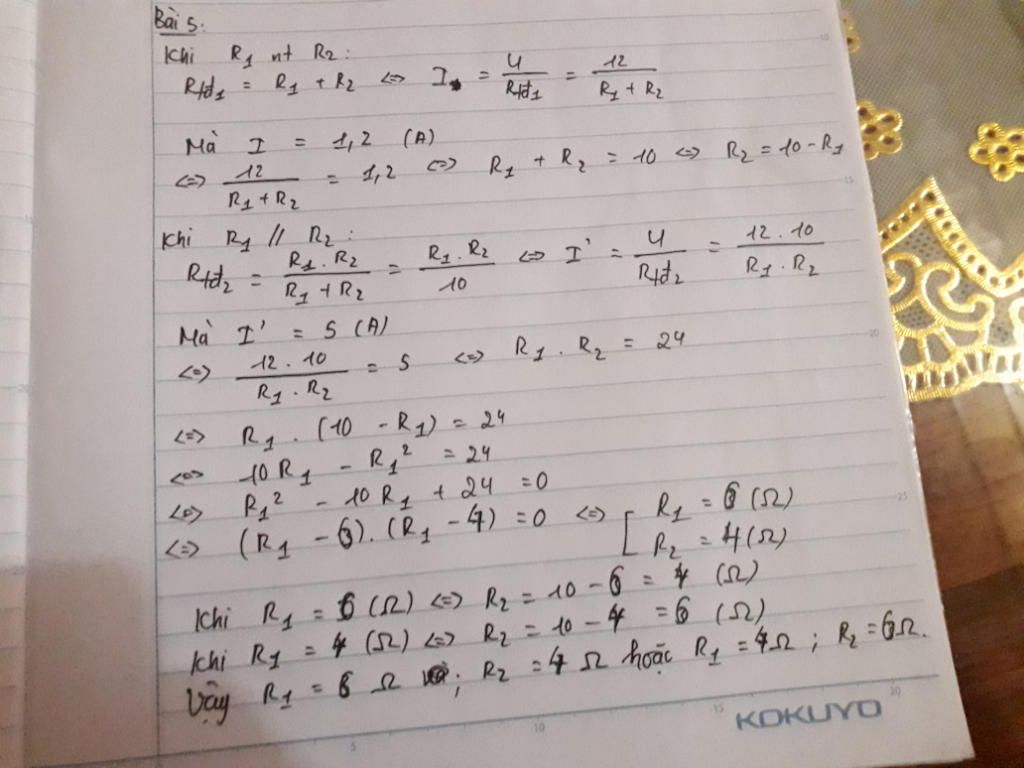 Bài 5:
Khi R₁ nt R₂:
Rtđ₁ = R₁ + R₂ <=> I = U/Rtđ₁ = 12/(R₁ + R₂)
Mà I = 1,2 (A)
<=> 12/(R₁ + R₂) = 1,2 <=> R₁ + R₂ = 10 <=> R₂ = 10 - R₁
Khi R₁ // R₂:
Rtđ₂ = (R₁ . R₂)/(R₁ + R₂) = (R₁ . R₂)/10 <=> I' = U/Rtđ₂ = (12 . 10)/(R₁ . R₂)
Mà I' = 5 (A)
<=> (12 . 10)/(R₁ . R₂) = 5 <=> R₁ . R₂ = 24
<=> R₁ . (10 - R₁) = 24
<=> 10 R₁ - R₁² = 24
<=> R₁² - 10 R₁ + 24 = 0
<=> (R₁ - 6) . (R₁ - 4) = 0 <=> [ R₁ = 6 (Ω)
R₂ = 4 (Ω)
Khi R₁ = 6 (Ω) <=> R₂ = 10 - 6 = 4 (Ω)
Khi R₁ = 4 (Ω) <=> R₂ = 10 - 4 = 6 (Ω)
Vậy R₁ = 6 Ω ; R₂ = 4 Ω hoặc R₁ = 4Ω ; R₂ = 6Ω.
KOKUYO